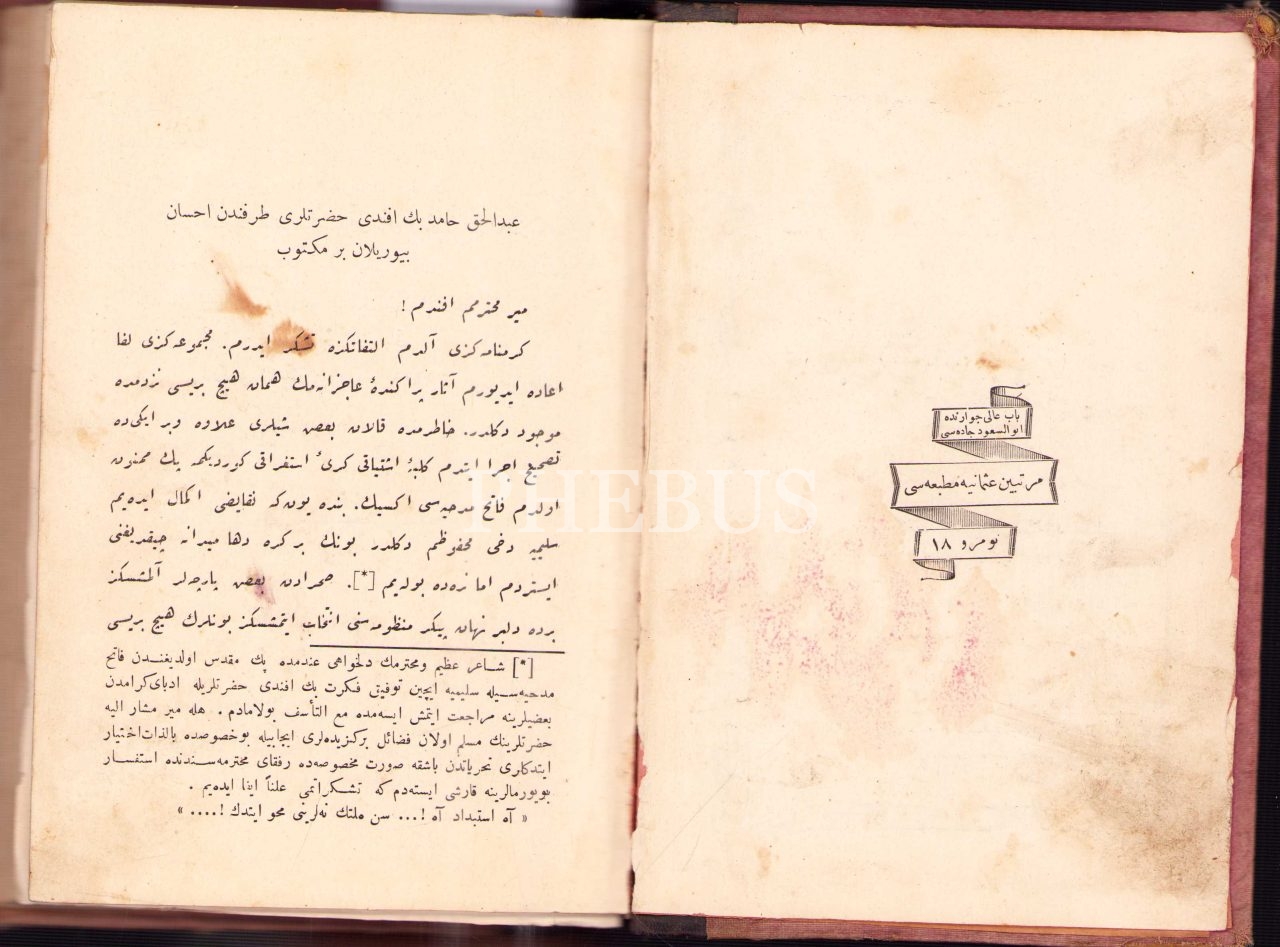 باب عالی جوارنده
ابوالسعود جاده‌سی
مرتبین عثمانیه مطبعه‌سی
نومرو ١٨
عبدالحق حامد بك افندی حضرتلری طرفندن احسان
بیوریلان بر مکتوب
میر محترمم افندم !
کرمنامه‌کزی آلدم التفاتکزه تشکر ایدرم. مجموعه‌کزی لفا
اعاده ایدیورم آثار پراکندهٔ عاجزانه‌مك همان هیچ بریسی نزدمده
موجود دکلدر. خاطرمده قالان بعض شیلری علاوه وبر ایکی‌ده
تصحیح اجرا ایتدم کلبهٔ اشتیاقی کریٔ استغراقی کوردیکمه پك ممنون
اولدم فاتح مدحیه‌سی اکسیك. بنده یوق‌که نقایصنی اکمال ایده‌یم
سلیمیه دخی محفوظم دکلدر بونك برکره دها میدانه چیقدیغنی
ایستردم اما نره‌ده بوله‌یم [*]. صحرادن بعض پارچه‌لر آلمشسکز
برده دلبر نهان پیکر منظومه‌سنی انتخاب ایتمشسکز بونلرك هیچ بریسی
[*] شاعر عظیم ومحترمك دلخواهی عندمده پك مقدس اولدیغندن فاتح
مدحیه‌سیله سلیمیه ایچین توفیق فکرت بك افندی حضرتلریله ادبای‌کرامدن
بعضیلرینه مراجعت ایتمش ایسه‌مده مع التأسف بولامادم . هله میر مشار الیه
حضرتلرینك مسلم اولان فضائل برکزیده‌لری ایجابیله بوخصوصده بالذات‌اختیار
ایتدکلری تحریاتدن باشقه صورت مخصوصه‌ده رفقای محترمه‌سندنده استفسار
بویورمالرینه قارشی ایسته‌دم که تشکراتمی علناً ایفا ایده‌یم .
« آه استبداد آه !... سن ملتك نه‌لرینی محو ایتدك !.... »
PHEBUS